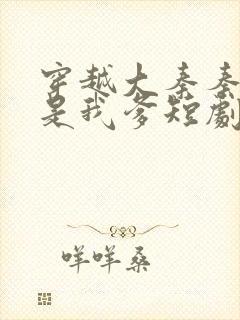 穿越大秦秦
是我爹短劇
咩咩桑